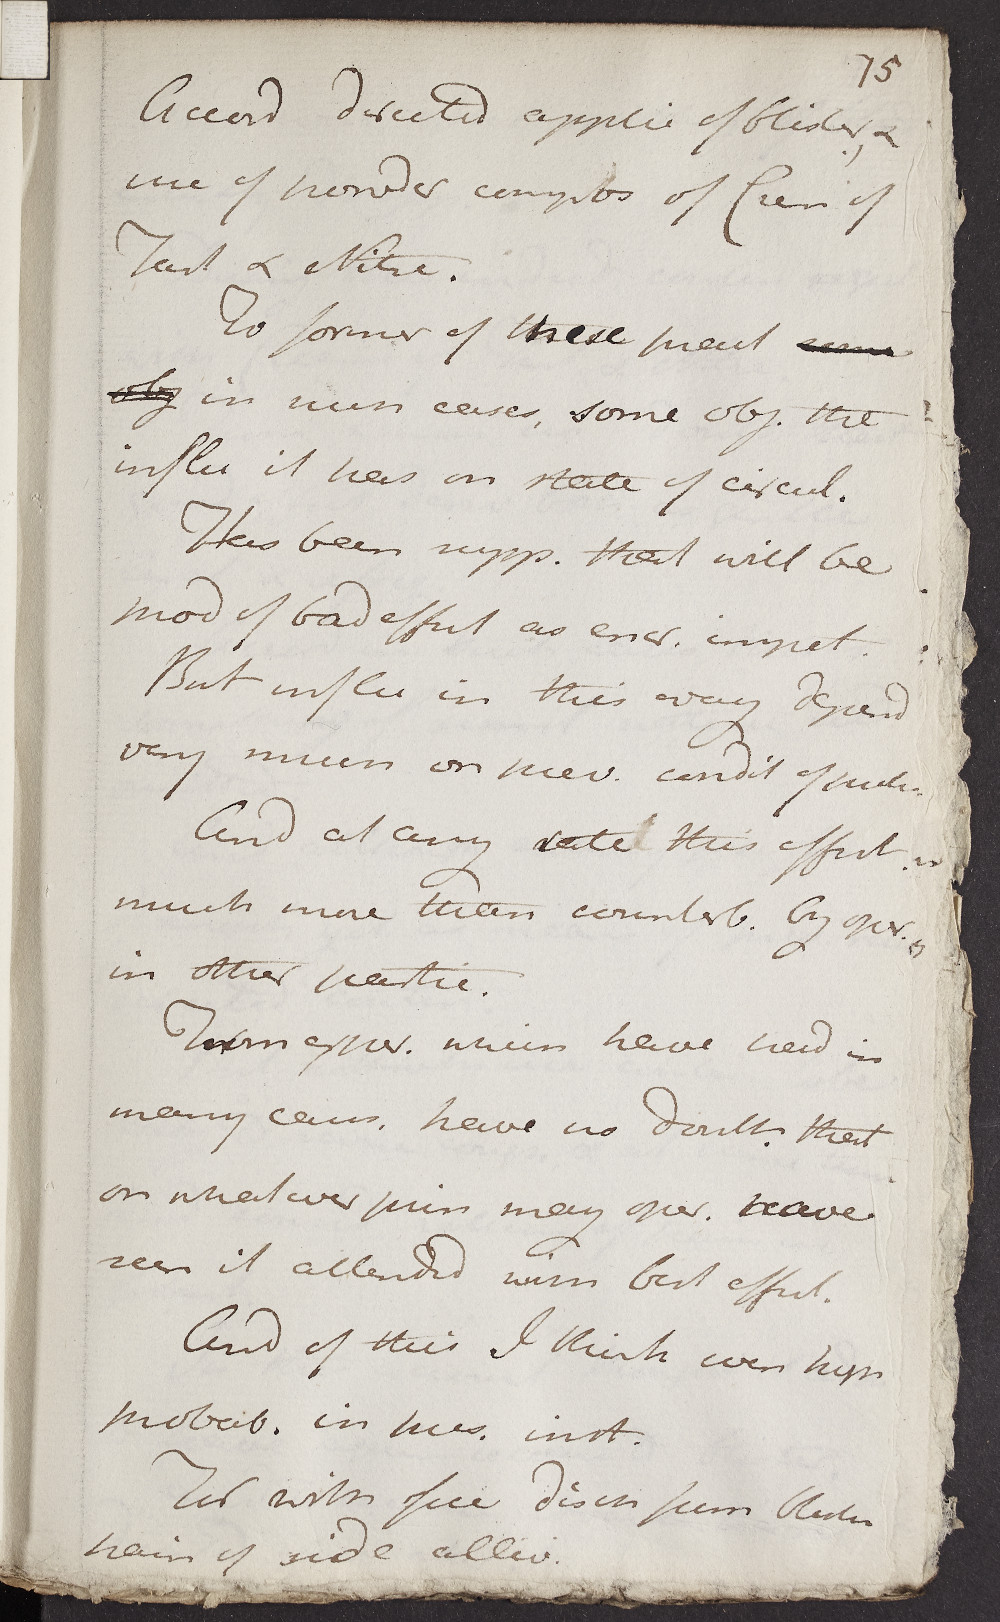 75
Accord directed applic of blister, &
use of powder compos of Crem of
Tart & Nitre.
To former of these pract
obj in such cases, some obj. the
influ it has on state of circul.
Has been supp. that will be
prod of bad effect as encr. impet.
But influ in this way depend
very much on prev. condit of
And at any rate this effect is
much more than counterb. by oper.
in other partic.
From exper. which have had in
many cases, have no doubt. that
on whatever prin may oper. have
seen it attended with best effect.
And of this I think was high
probab. in pres. inst.
For with free disch from blister
pain of side allev.